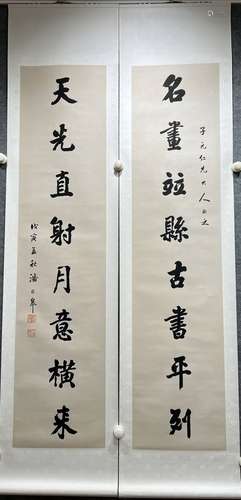 名畫竝縣古書平列
子元仁兄大人正之
天光直射月意橫来
戊寅孟秋潘